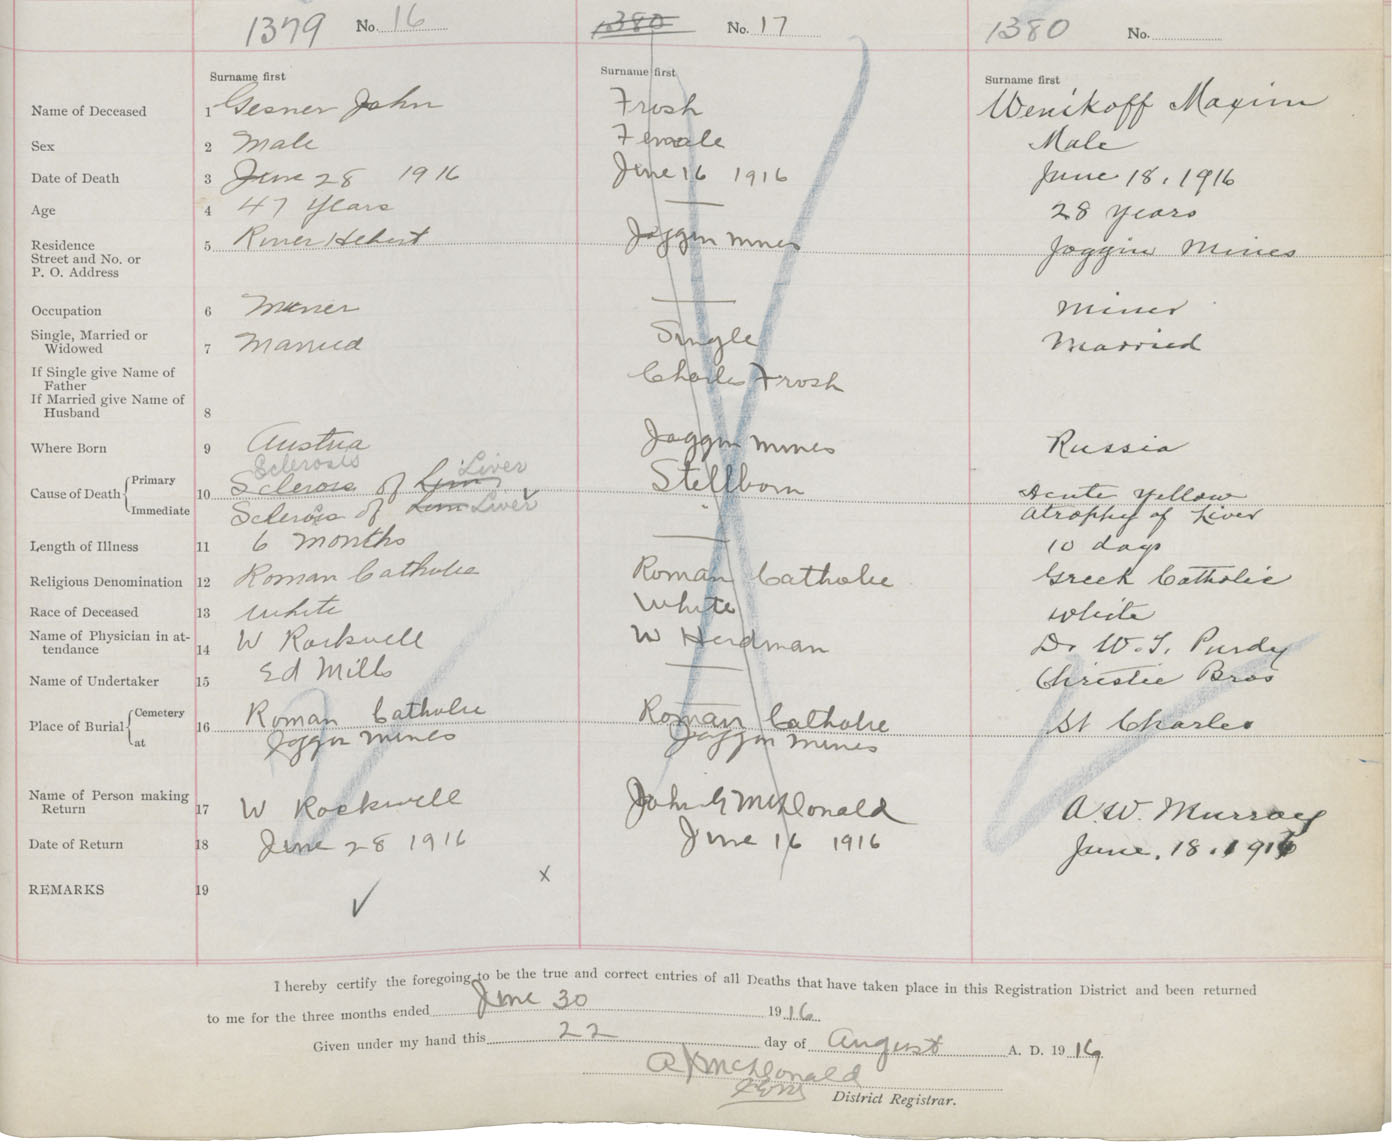 1379 No. 16 1380 No. 17 1380 No.
Surname first Surname first Surname first
Name of Deceased 1 Gesner John Frosh Wenikoff Maxim
Sex 2 Male Female Male
Date of Death 3 June 28 1916 June 16 1916 June 18, 1916
Age 4 47 years — 28 years
Residence 5 River Hebert Joggin Mines Joggin Mines
Street and No. or
P. O. Address
Occupation 6 Miner — Miner
Single, Married or
Widowed 7 Married Single Married
If Single give Name of
Father Charles Frosh
If Married give Name of
Husband 8
Where Born 9 Austria Joggin Mines Russia
Sclerosis Liver
Cause of Death { Primary 10 Sclerosis of Stillborn Acute Yellow
Immediate Sclerosis of Liver " atrophy of Liver
Length of Illness 11 6 months — 10 days
Religious Denomination 12 Roman Catholic Roman Catholic Greek Catholic
Race of Deceased 13 White White White
Name of Physician in at-
tendance 14 W Rockwell W Herdman Dr W. T. Purdy
Name of Undertaker 15 Ed Mills — Christie Bros
Place of Burial { Cemetery 16 Roman Catholic Roman Catholic St Charles
at Joggin Mines Joggin Mines
Name of Person making
Return 17 W Rockwell John G McDonald A. W. Murray
Date of Return 18 June 28 1916 June 16 1916 June, 18, 1916
REMARKS 19 ✓ x
I hereby certify the foregoing to be the true and correct entries of all Deaths that have taken place in this Registration District and been returned
to me for the three months ended June 30 1916
Given under my hand this 22 day of August A. D. 1916
McDonald
District Registrar.